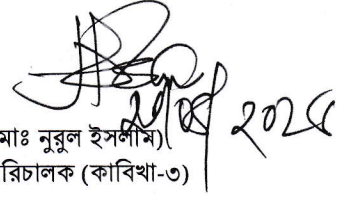 ২০২৫
মাঃ নুরুল ইসলাম)
রিচালক (কাবিখা-৩)